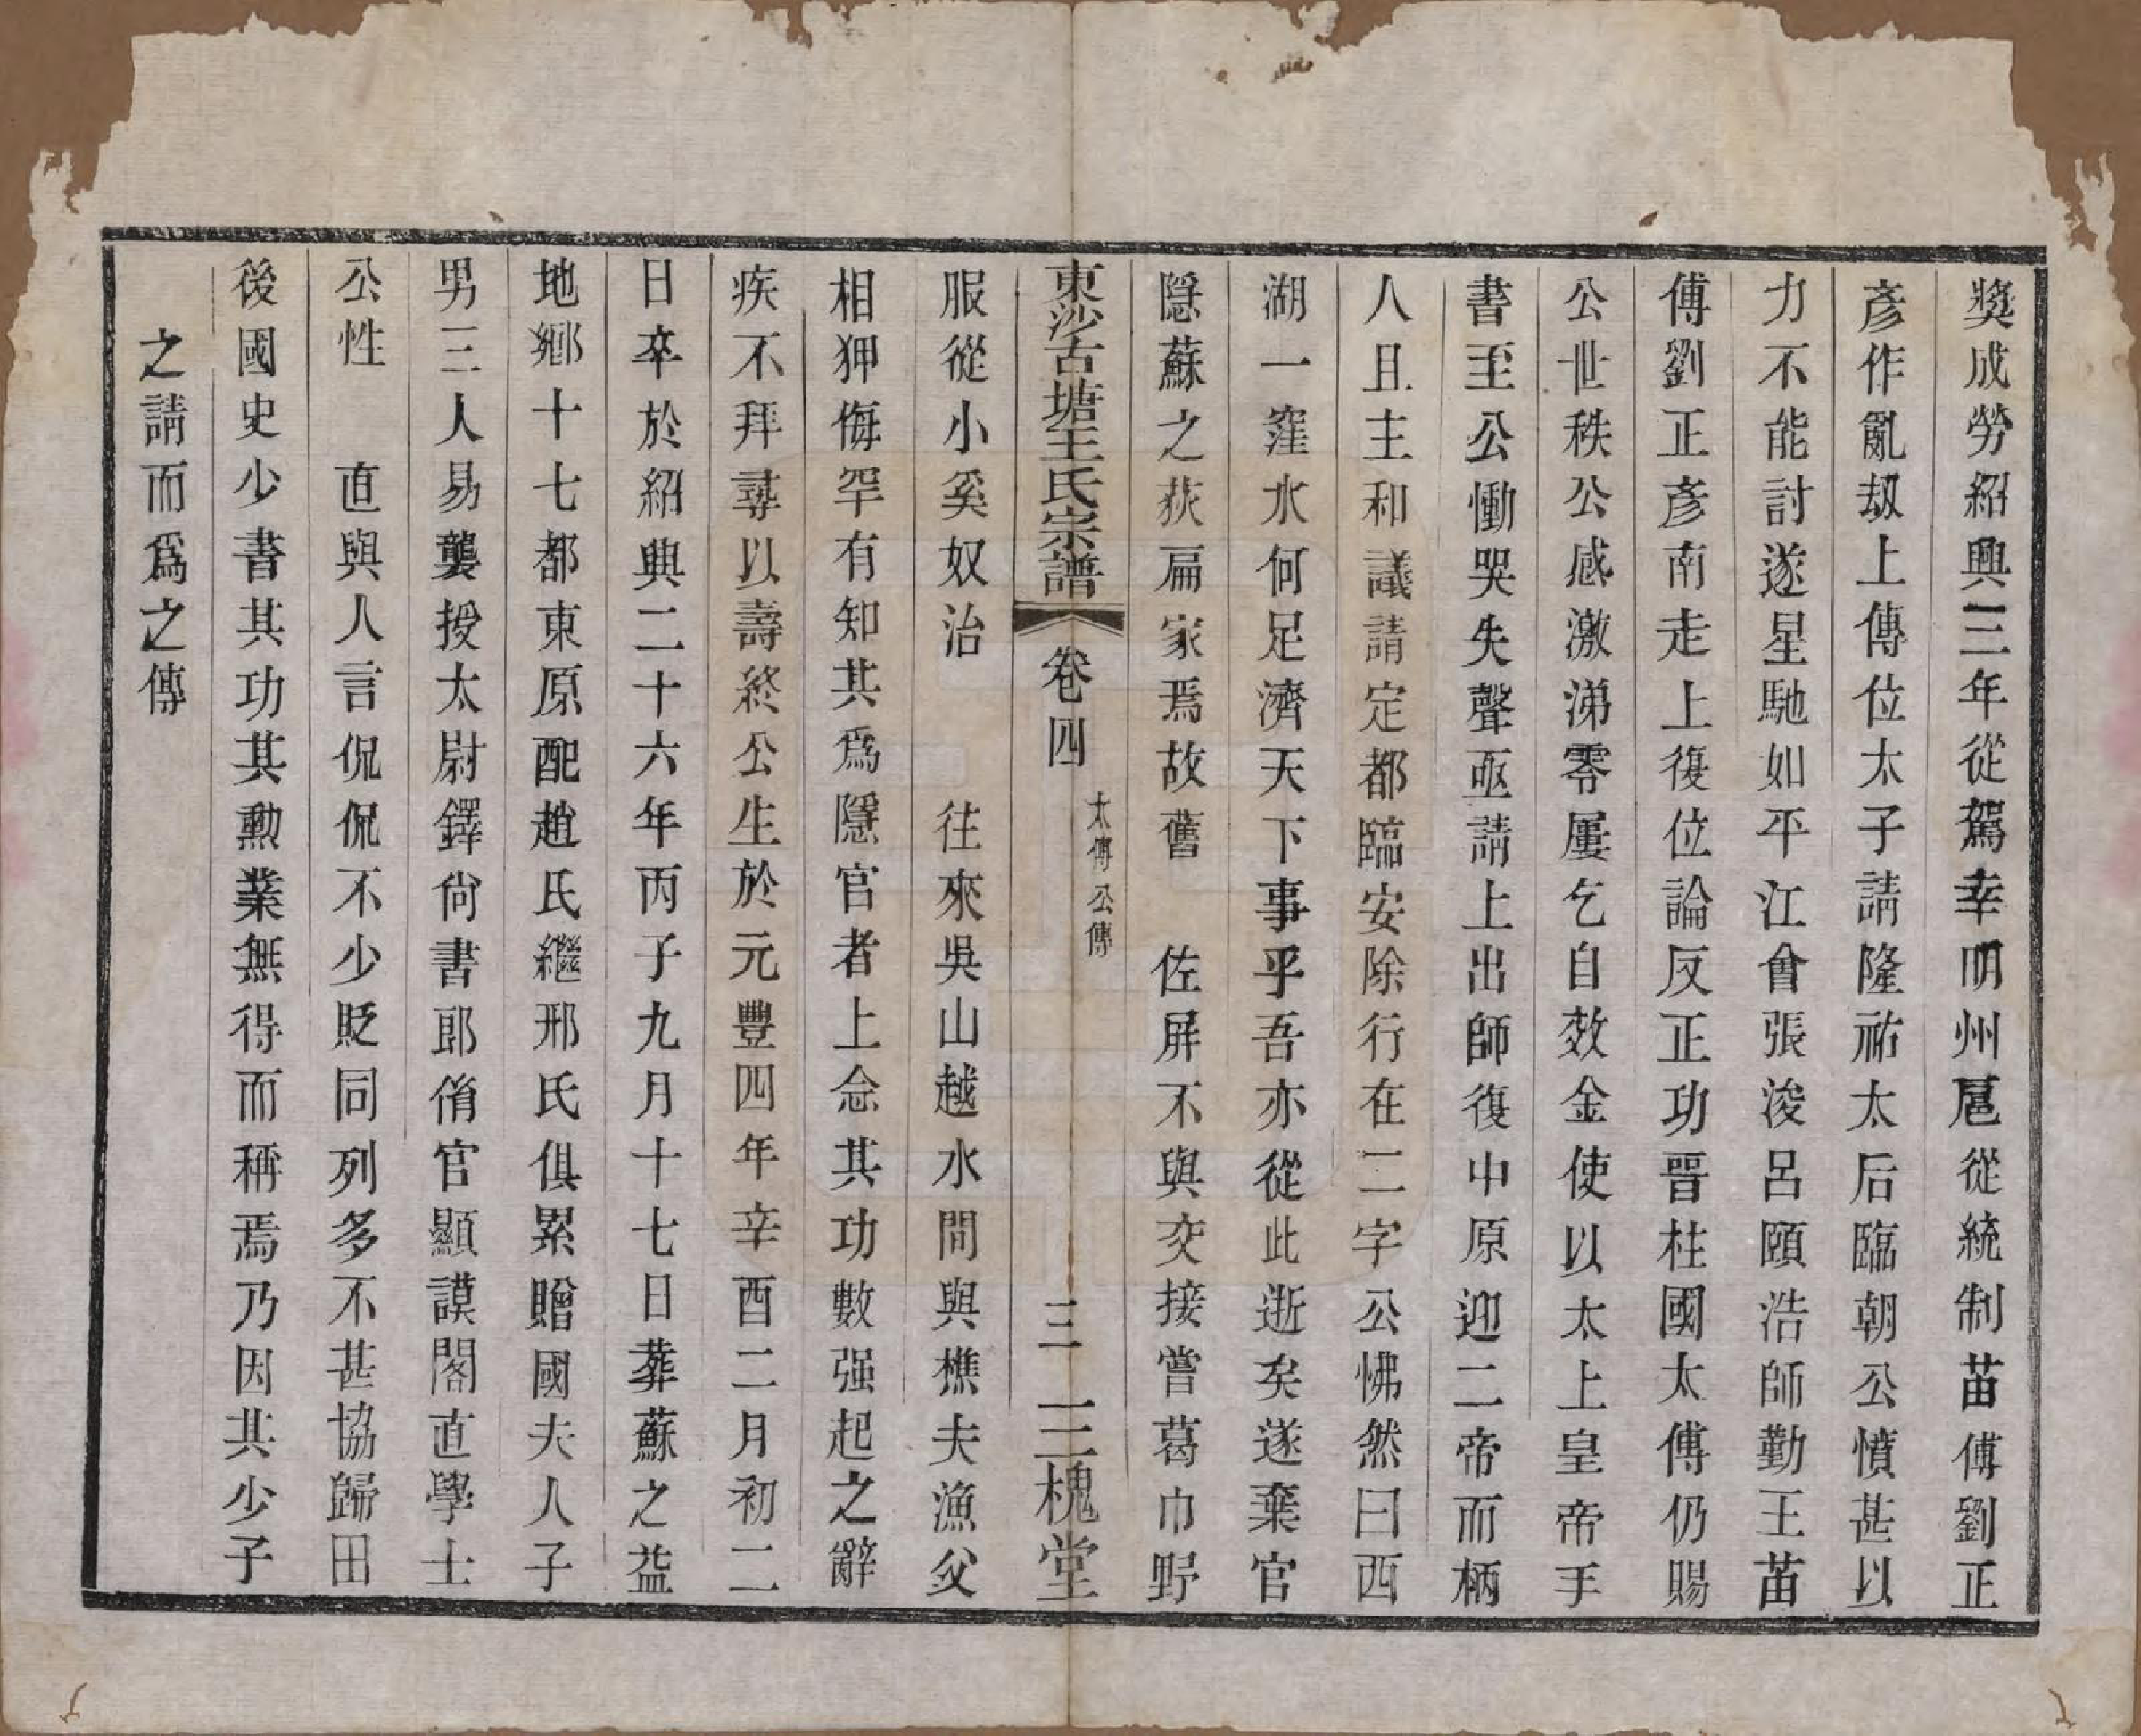 獎成勞紹興三年從駕幸明州扈從統制苗傅劉正
彥作亂刼上傳位太子請隆祐太后臨朝公憤甚以
力不能討遂星馳如平江會張浚呂頤浩師勤王苗
傅劉正彥南走上復位論反正功晉柱國太傅仍賜
公世秩公感激涕零屢乞自效金使以太上皇帝手
書至公慟哭失聲亟請上出師復中原迎二帝而柄
人且主和議請定都臨安除行在二字公怫然曰西
湖一窪水何足濟天下事乎吾亦從此逝矣遂棄官
隱蘇之荻扁家焉故舊 佐屏不與交接嘗葛巾野
東沙古塘王氏宗譜 卷四 太傅公傳 三 三槐堂
服從小奚奴治 往來吳山越水間與樵夫漁父
相狎侮罕有知其爲隱官者上念其功數强起之辭
疾不拜尋以壽終公生於元豐四年辛酉二月初二
日卒於紹興二十六年丙子九月十七日葬蘇之益
地鄉十七都東原配趙氏繼邢氏俱累贈國夫人子
男三人易龔授太尉鐸尙書郎脩官顯謨閣直學士
公性 直與人言侃侃不少貶同列多不甚協歸田
後國史少書其功其勳業無得而稱焉乃因其少子
之請而爲之傳